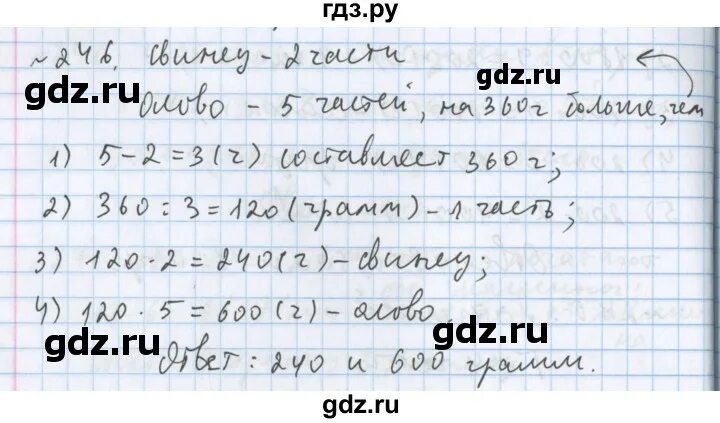 гдз.ру
№246. Свинец – 2 части
Олово – 5 частей, на 360г больше, чем
1) 5-2=3(ч) составляет 360г;
2) 360:3=120(грамм)-1 часть;
3) 120·2=240(г)-свинец;
4) 120·5=600(г)-олово
Ответ: 240 и 600 грамм.
gdz.ru
gdz.ru
gdz.ru
gdz.ru
gdz.ru
gdz.ru
gdz.ru